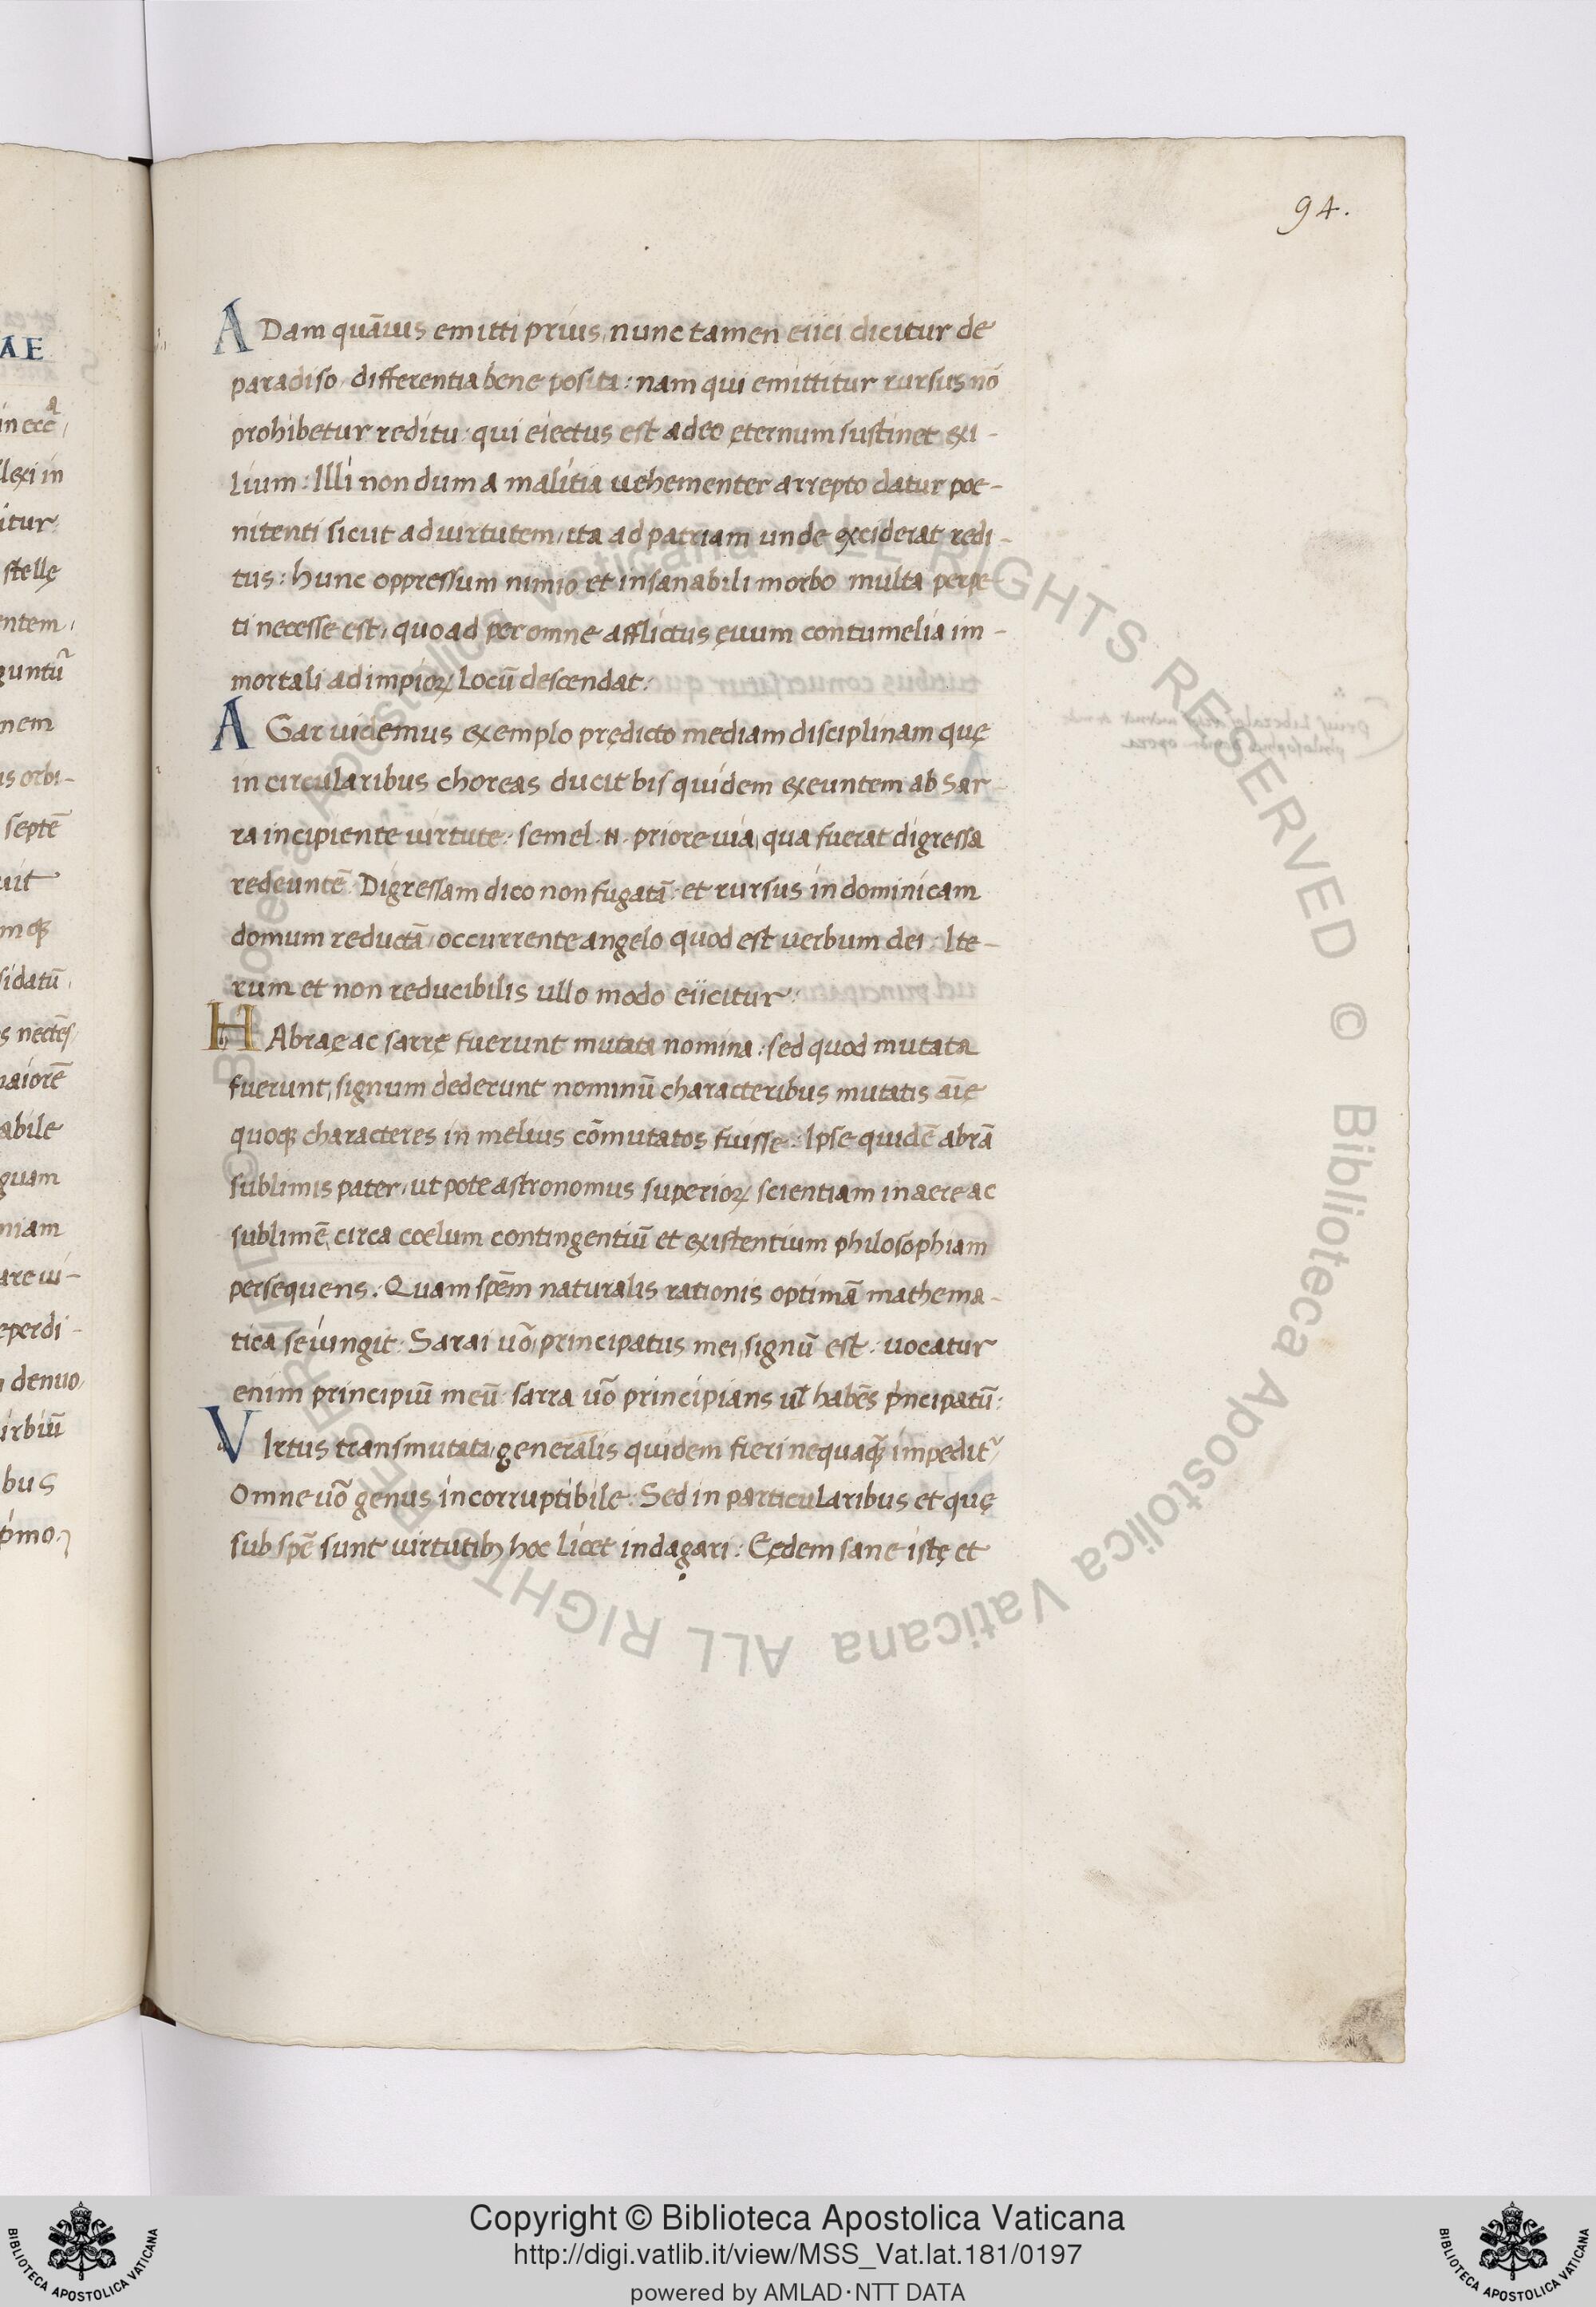 AE
in ecc̄ᵃ
flexi in
itur
stellę
entem,
guntur̃
nem
us orbi-
septē
uit
mqꝫ
sidatū,
s nectēs,
maiorē
abile
quam
niam
are ui-
eperdi-
denuo,
irbiū
bus
94.
ADam quāuis emitti prius, nunc tamen eiici dicitur de
paradiso, differentia bene posita: nam qui emittitur rursus nō
prohibetur reditu: qui eiectus est adeo ęternum sustinet exi-
lium: Illi nondum a malitia uehementer arrepto datur poe-
nitenti sicut ad uirtutem, ita ad patriam unde exciderat redi-
tus: hunc oppressum nimio et insanabili morbo multa perpe-
ti necesse est, quo ad per omne afflictus ęuum contumelia im-
mortali ad impioꝝ locū descendat:
AGar uidemus exemplo prędicto mediam disciplinam quę
in circularibus choreas ducit bis quidem exeuntem ab Sar-
ra incipiente uirtute: semel .n. priore uia, qua fuerat digressa
redeuntē. Digressam dico non fugatā: et rursus in dominicam
domum reductā, occurrente angelo quod est uerbum dei: Ite-
rum et non reducibilis ullo modo eiicitur:
HAbraę ac sarrę fuerunt mutata nomina: sed quod mutata
fuerunt, signum dederunt nominū characteribus mutatis aīę
quoqꝫ characteres in melius cōmutatos fuisse: Ipse quidē abrā
sublimis pater, ut pote astronomus superioꝝ scientiam in aere ac
sublimē, circa coelum contingentiū et existentium philosophiam
persequens. Quam spēm naturalis rationis optimā mathema-
tica seiungit: Sarai uō principatus mei, signū est: uocatur
enim principiū meū: sarra uō principians ul̄ habēs pͥncipatū:
VIrtus transmutata, generalis quidem fieri nequaqꝫ impedit̃
Omne uō genus incorruptibile: Sed in particularibus et quę
sub spē sunt uirtutibꝫ hoc licet indagari: Eędem sane istę et
© Biblioteca Apostolica Vaticana ALL RIGHTS RESERVED © Biblioteca Apostolica Vaticana ALL RIGHTS RESERVED
Copyright © Biblioteca Apostolica Vaticana
http://digi.vatlib.it/view/MSS_Vat.lat.181/0197
powered by AMLAD·NTT DATA
BIBLIOTECA APOSTOLICA VATICANA
BIBLIOTECA APOSTOLICA VATICANA